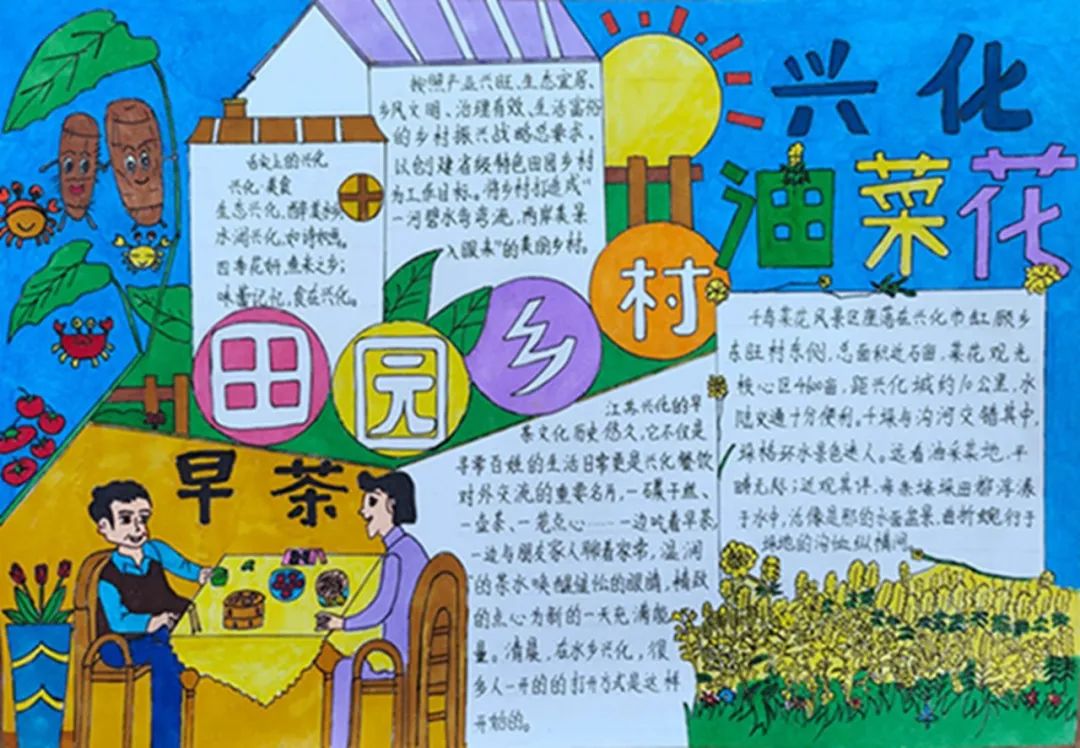 兴化
油菜花
按照产业兴旺、生态宜居、
乡风文明、治理有效、生活富裕
的乡村振兴战略总要求,
以创建省级特色田园乡村
为工作目标。将乡村打造成“
一河碧水弯弯流,两岸美景
入眼来”的美丽乡村。
舌尖上的兴化
兴化·美食
生态兴化,醉美水乡;
水润兴化,如诗如画。
四季花妍,鱼米之乡;
味蕾记忆,食在兴化。
田园乡村
千垛菜花风景区座落在兴化市缸顾乡
东旺村东侧,总面积近万亩,菜花观光
核心区4600亩,距兴化城约10公里,水
陆交通十分便利。千垛与沟河交错其中,
垛格环水景色迷人。远看油菜花地,平
畴无际;近观其伴,每条墙垛田都浮漂
于水中,活像是那的水面盆景,曲折蜿衍于
垛地的沟恤纵横间。
早茶
江苏兴化的早
茶文化历史悠久,它不仅是
寻常百姓的生活日常更是兴化餐饮
对外交流的重要名片,一碟干丝、
一壶茶、一笼点心……一边吃着早茶,
一边与朋友家人聊着家常,温润
的茶水唤醒惺忪的眼睛,精致
的点心为新的一天充满能
量。清晨,在水乡兴化,很
多人一天的的打开方式是这样
开始的。